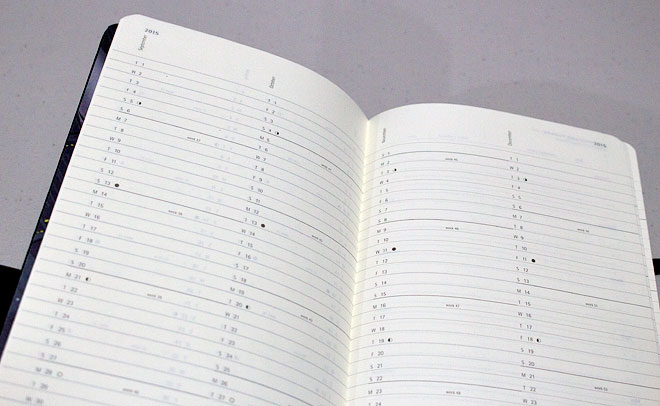 2015
September
T 1
W 2
T 3
F 4
S 5
S 6
M 7
T 8
W 9
T 10
F 11
S 12
S 13
M 14
T 15
W 16
T 17
F 18
S 19
S 20
M 21
T 22
W 23
T 24
F 25
S 26
S 27
M 28
T 29
W 30
week 37
week 38
week 39
week 40
October
T 1
F 2
S 3
S 4
M 5
T 6
W 7
T 8
F 9
S 10
S 11
M 12
T 13
W 14
T 15
F 16
S 17
S 18
M 19
T 20
W 21
T 22
F 23
S 24
S 25
M 26
T 27
November
S 1
M 2
T 3
W 4
T 5
F 6
S 7
S 8
M 9
T 10
W 11
T 12
F 13
S 14
S 15
M 16
T 17
W 18
T 19
F 20
S 21
S 22
M 23
T 24
week 45
week 46
week 47
week 48
December
2015
T 1
W 2
T 3
F 4
S 5
S 6
M 7
T 8
W 9
T 10
F 11
S 12
S 13
M 14
T 15
W 16
T 17
F 18
S 19
S 20
M 21
T 22
W 23